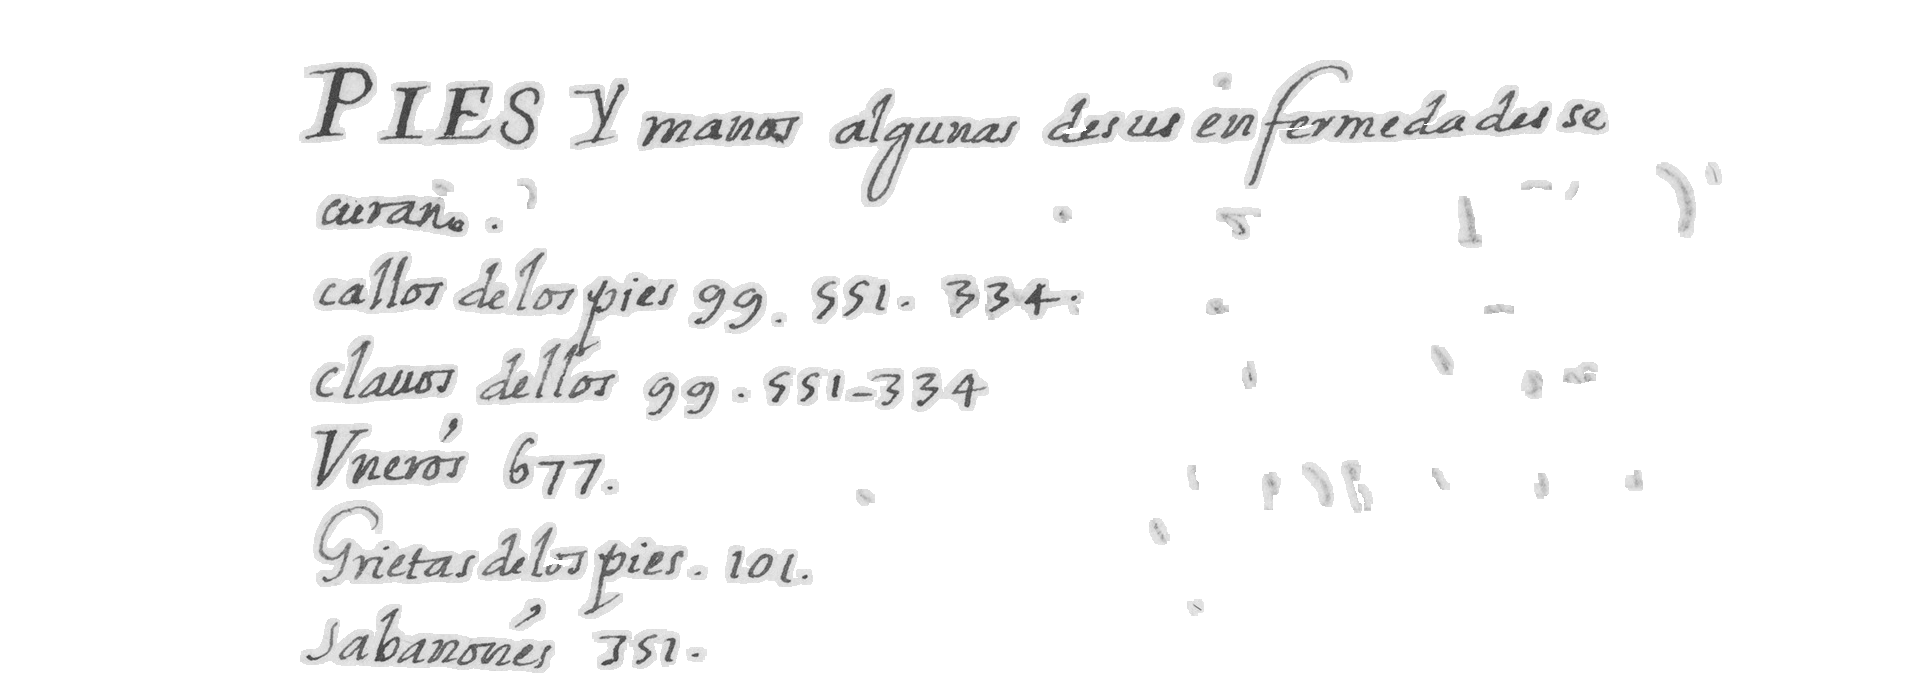 PIES Y manos algunas desus enfermedades se
curan.
callos delos pies 99. 551. 334.
clauos dellos 99. 551-334
Vnerós 677.
Grietas delos pies. 101.
Sabanonés 351.